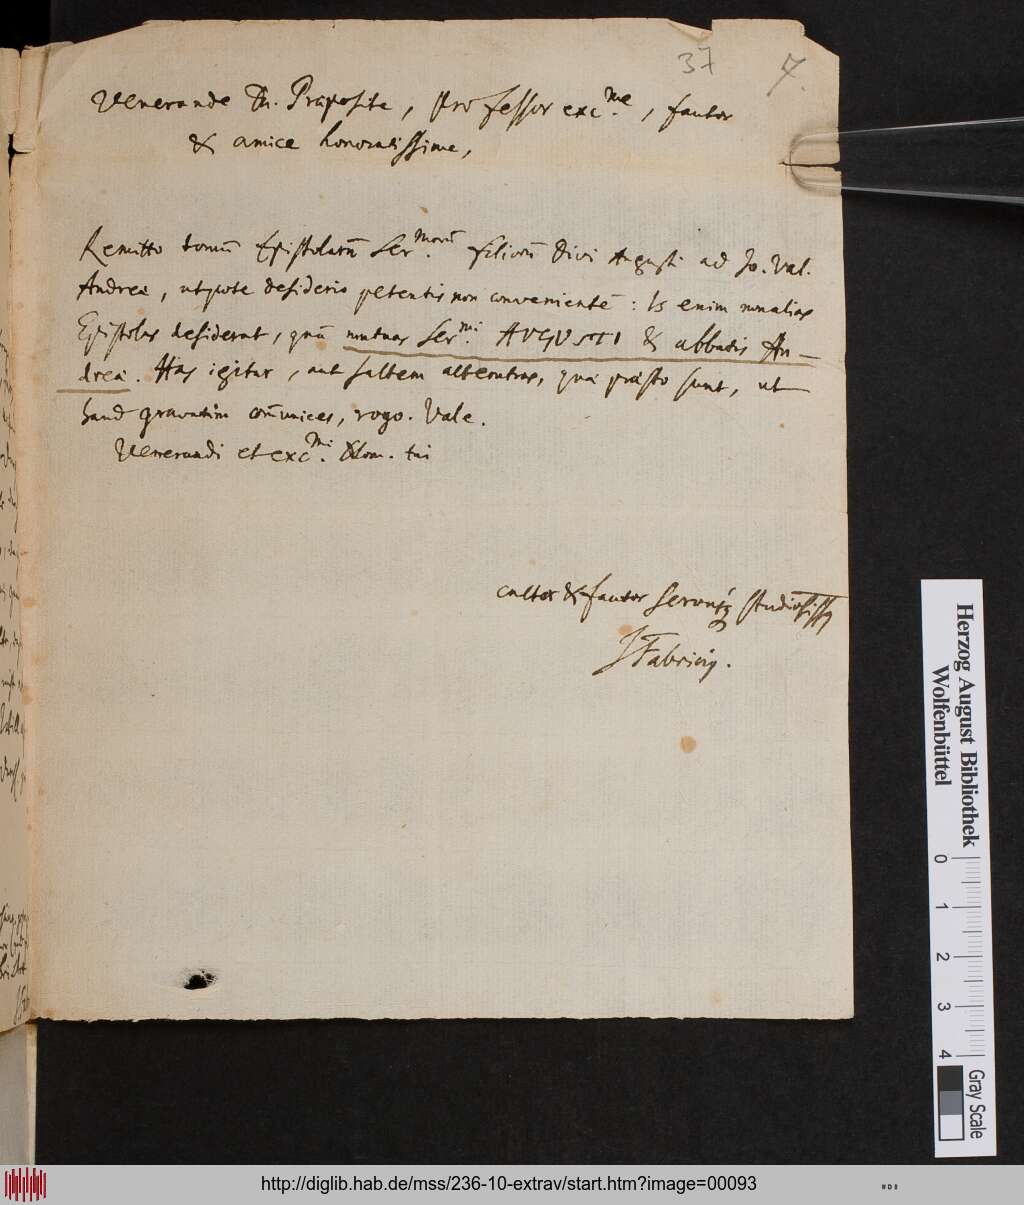 37 7.
Venerande Dn. Præposite, Professor exc.me, fautor
& amice honoratissime,
Remitto tomū Epistolarū Ser.morū filiorū Divi Augusti ad Jo. Val.
Andreæ, utpote desiderio petentis non convenientē: Is enim non alias
Epistolas desiderat, quā mutuas Ser.mi AUGUSTI & abbatis An-
dreæ. Has igitur, aut saltem alterutras, quæ præsto sunt, ut
haud gravatim com̄unices, rogo. Vale.
Venerandi et exc.mi Nom. tui
cultor & fautor
J Fabricig.
Herzog August Bibliothek
Wolfenbüttel
0 1 2 3 4
Gray Scale
http://diglib.hab.de/mss/236-10-extrav/start.htm?image=00093